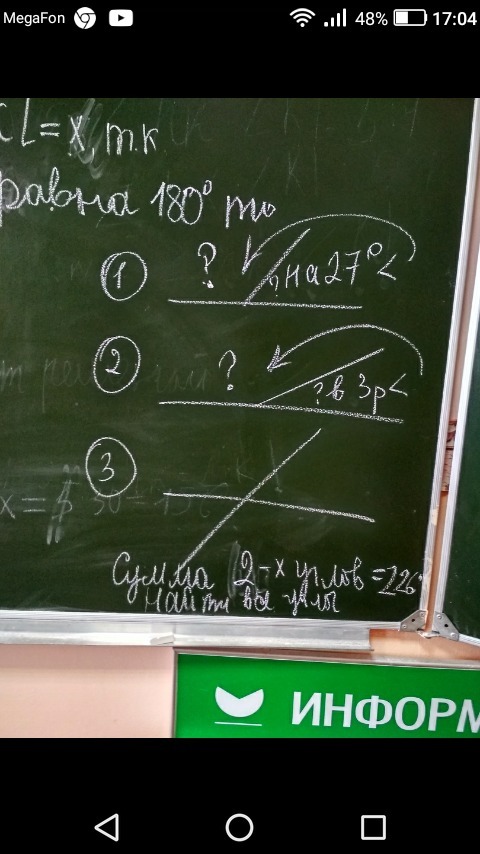 MegaFon 48% 17:04
L = x, т.к
равна 180° то
① ? ? на 27° <
② ? ? в 3р <
③
x =
Сумма 2-х углов = 226°
Найти все углы
ИНФОРМ